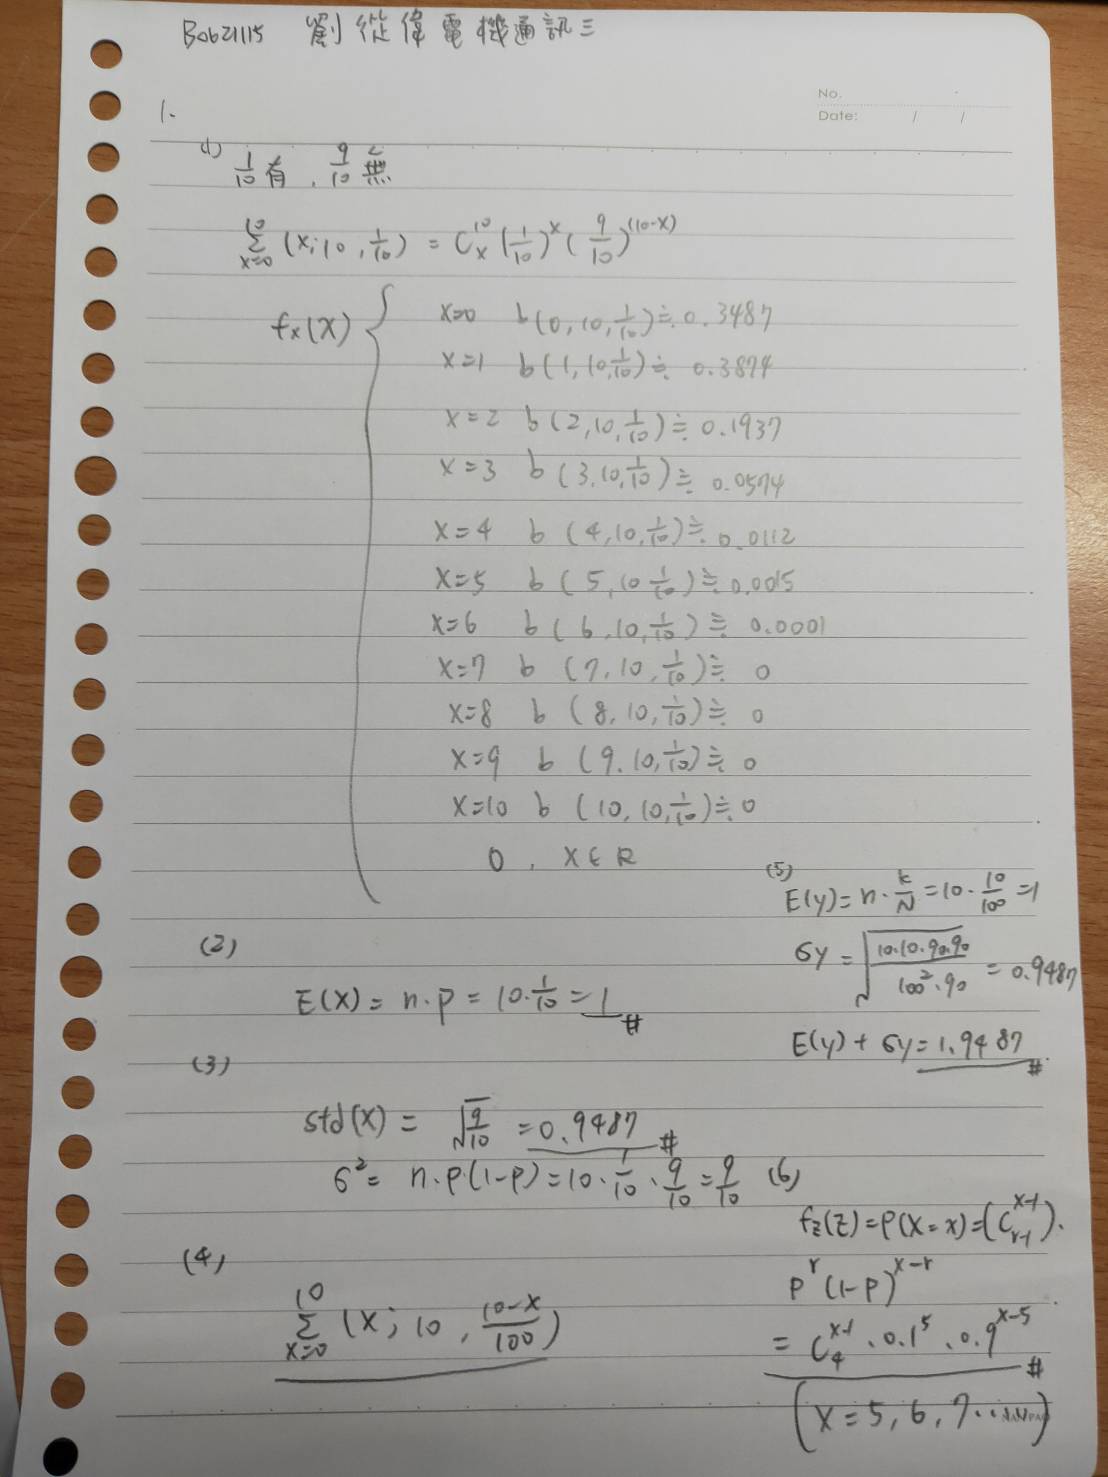 B0621115 劉從偉 電機通訊三
No.
Date: / /
1.
(1) 1/10 有, 9/10 無
∑_{x=0}^{10} (x; 10, 1/10) = C_x^{10} (1/10)^x (9/10)^{(10-x)}
f_x(X) {
x=0 b(0, 10, 1/10) ≒ 0.3487
x=1 b(1, 10, 1/10) ≒ 0.3874
x=2 b(2, 10, 1/10) ≒ 0.1937
x=3 b(3, 10, 1/10) ≒ 0.0574
x=4 b(4, 10, 1/10) ≒ 0.0112
x=5 b(5, 10 1/10) ≒ 0.0015
x=6 b(6, 10, 1/10) ≒ 0.0001
x=7 b(7, 10, 1/10) ≒ 0
x=8 b(8, 10, 1/10) ≒ 0
x=9 b(9. 10, 1/10) ≒ 0
x=10 b(10, 10, 1/10) ≒ 0
0 , X ∈ R
(2)
E(X) = n·p = 10·1/10 = 1 #
(3)
std(X) = √(9/10) = 0.9487 #
σ² = n·p·(1-p) = 10·1/10·9/10 = 9/10
(4)
∑_{x=0}^{10} (x; 10, (10-x)/100)
(5)
E(y) = n·k/N = 10·10/100 = 1
σy = √(10·10·90·90 / 100²·90) = 0.9487
E(y) + σy = 1.9487 #
(6)
f_z(Z) = P(X=x) = (C_{r-1}^{x-1}).
p^r (1-p)^{x-r}
= C_4^{x-1} · 0.1^5 · 0.9^{x-5} #
(x = 5, 6, 7 ....)